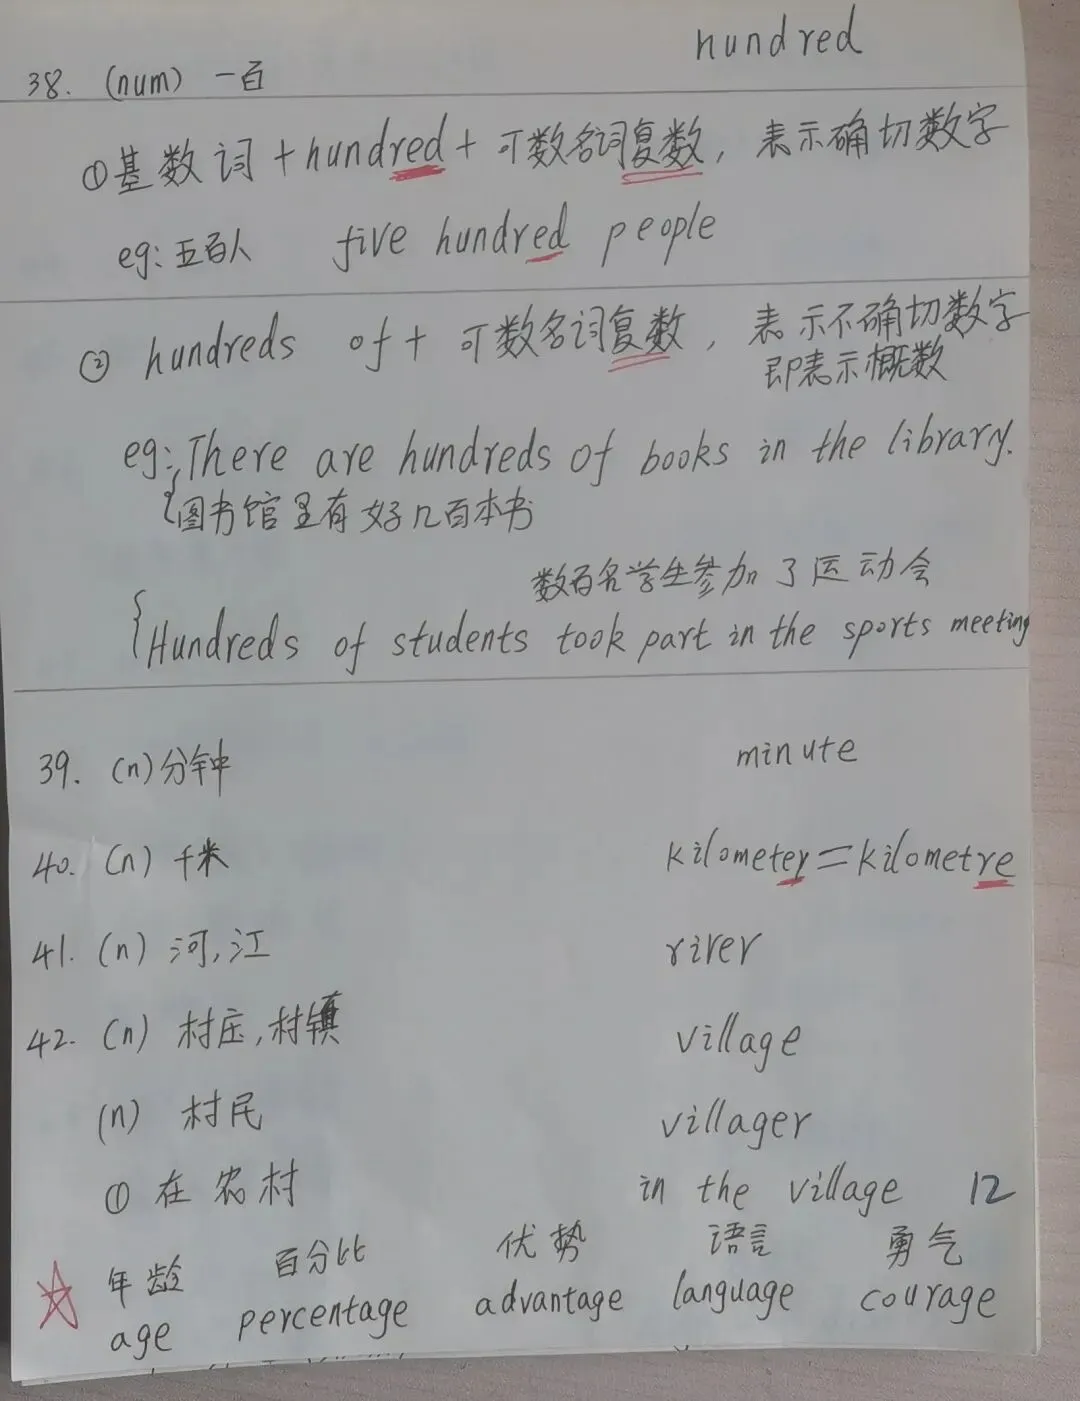 hundred
38. (num) 一百
①基数词+hundred+可数名词复数，表示确切数字
eg:五百人 five hundred people
② hundreds of+可数名词复数，表示不确切数字
即表示概数
eg:There are hundreds of books in the library.
图书馆里有好几百本书
数百名学生参加了运动会
Hundreds of students took part in the sports meeting
39. (n)分钟 minute
40. (n)千米 kilometer=kilometre
41. (n)河,江 river
42. (n)村庄,村镇 village
(n)村民 villager
①在农村 in the village 12
年龄 百分比 优势 语言 勇气
age percentage advantage language courage